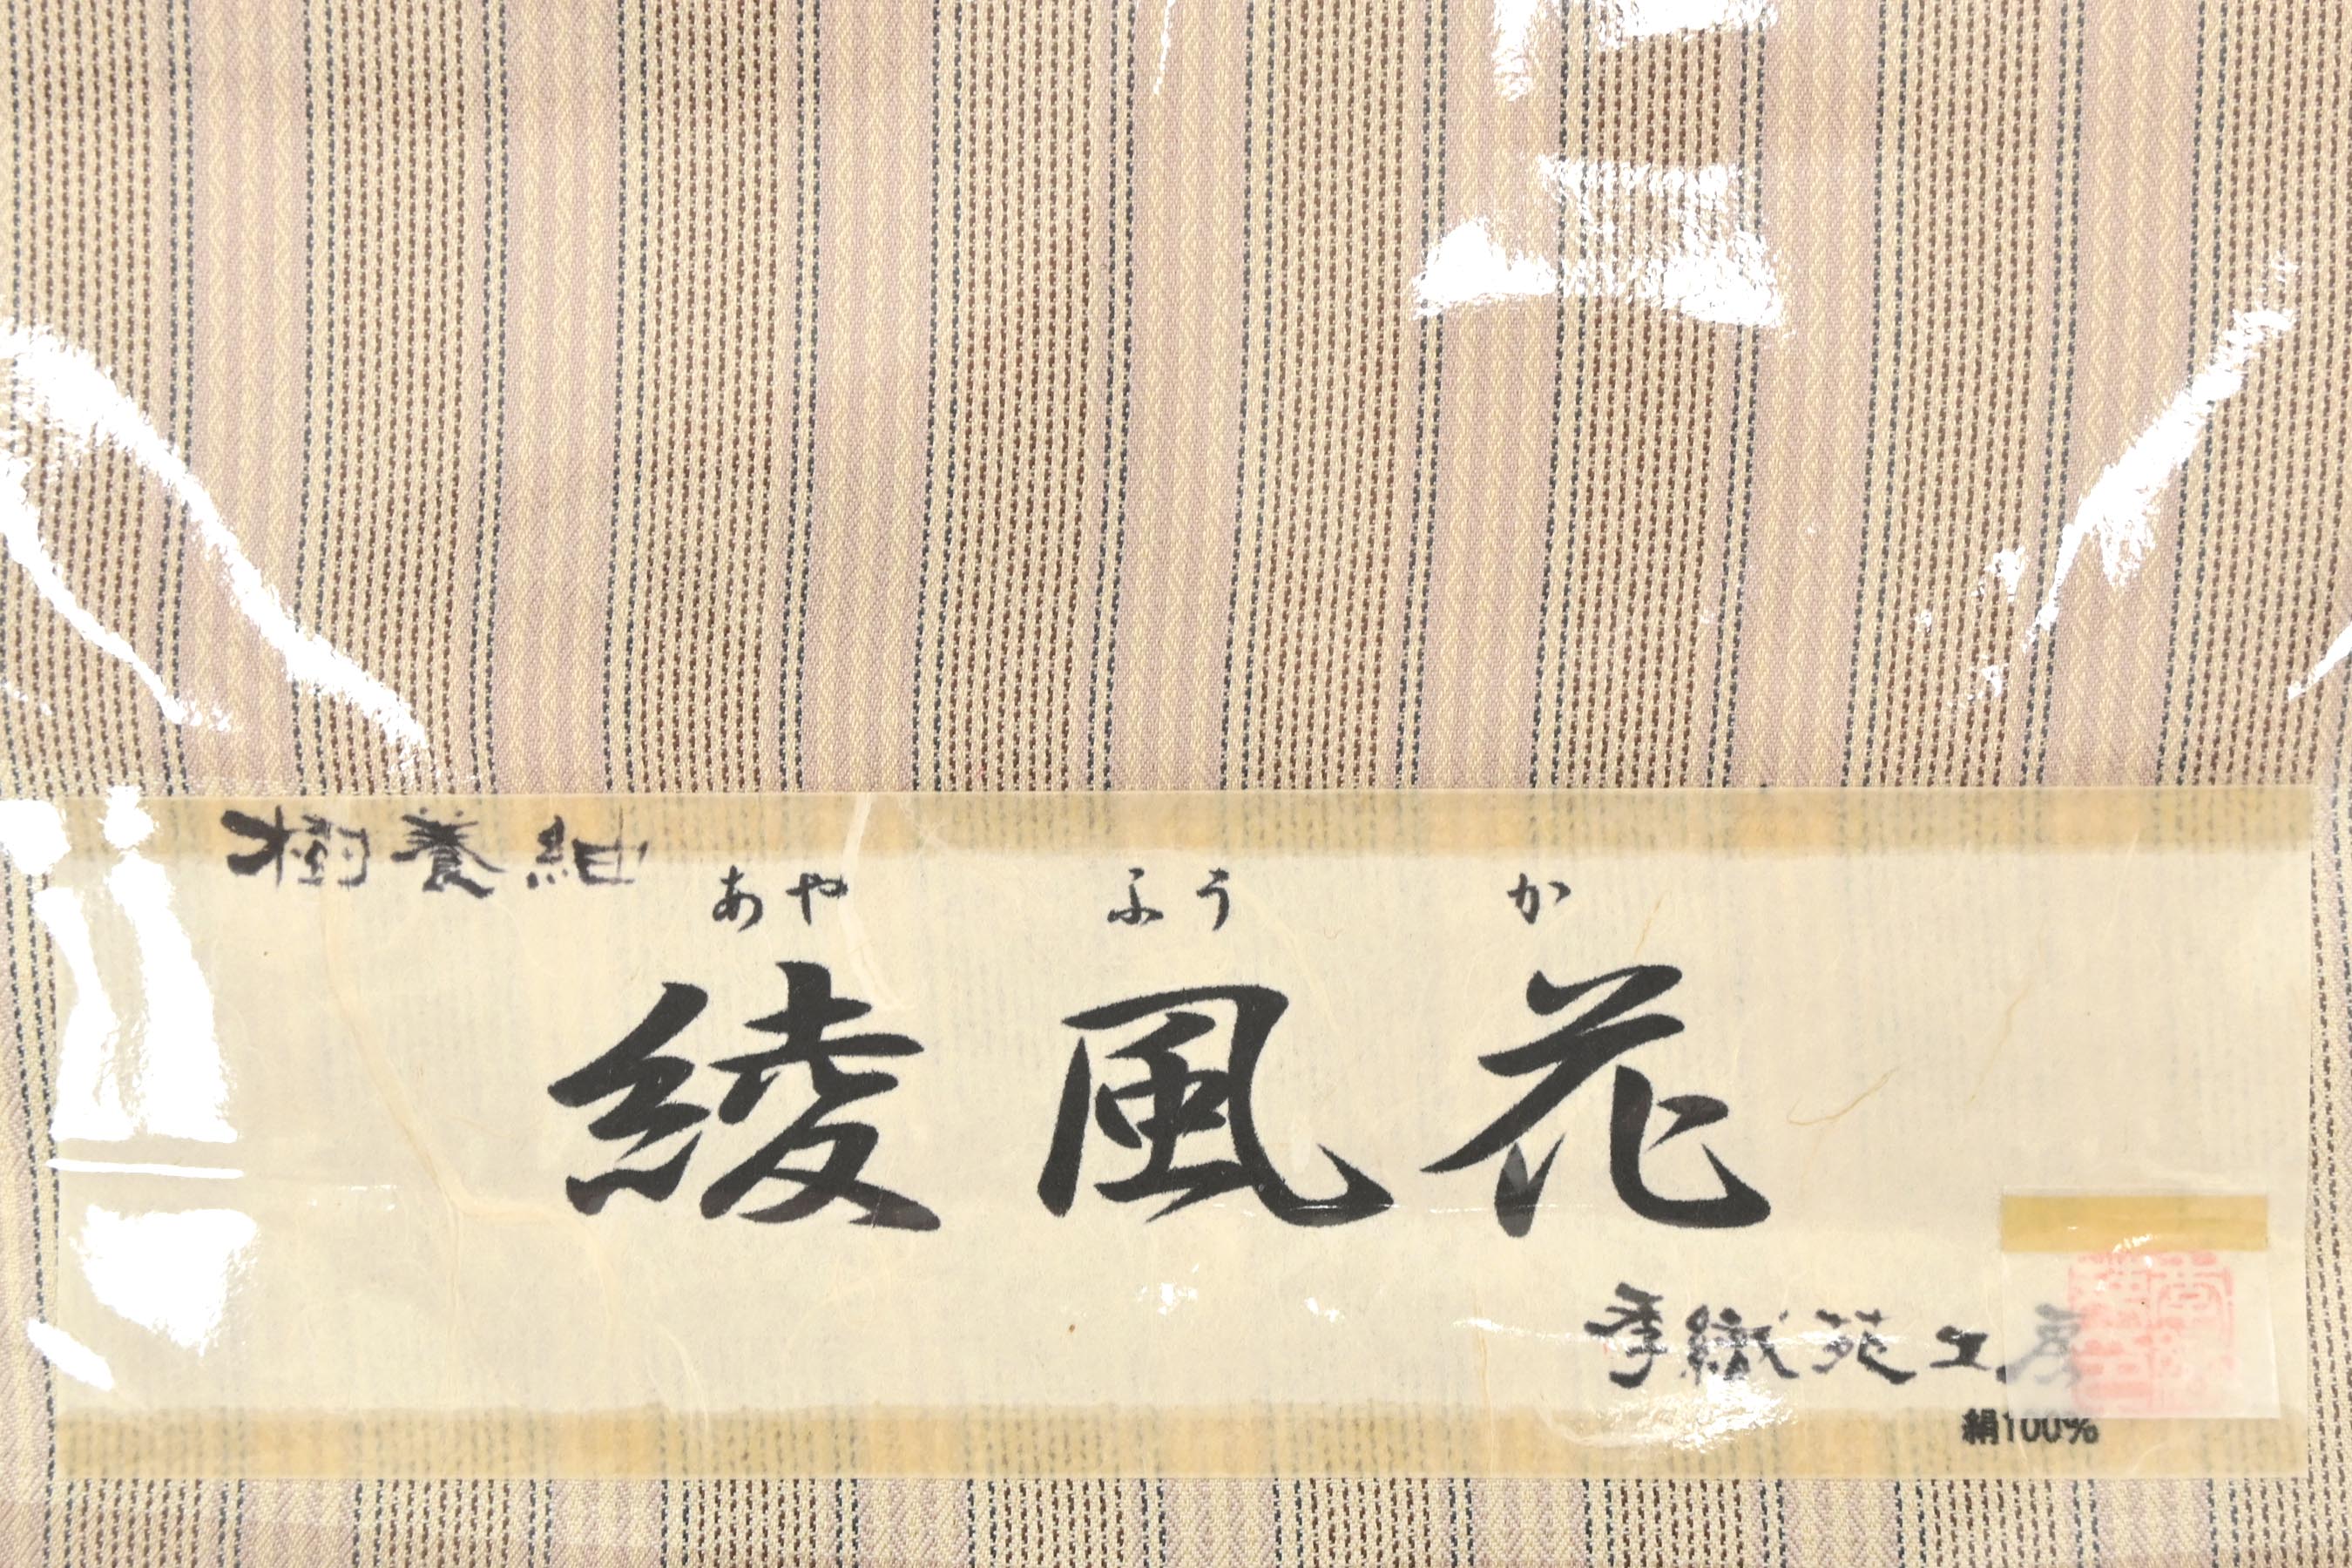 樹養紬
あや ふう か
綾風花
季織苑工房
絹100%